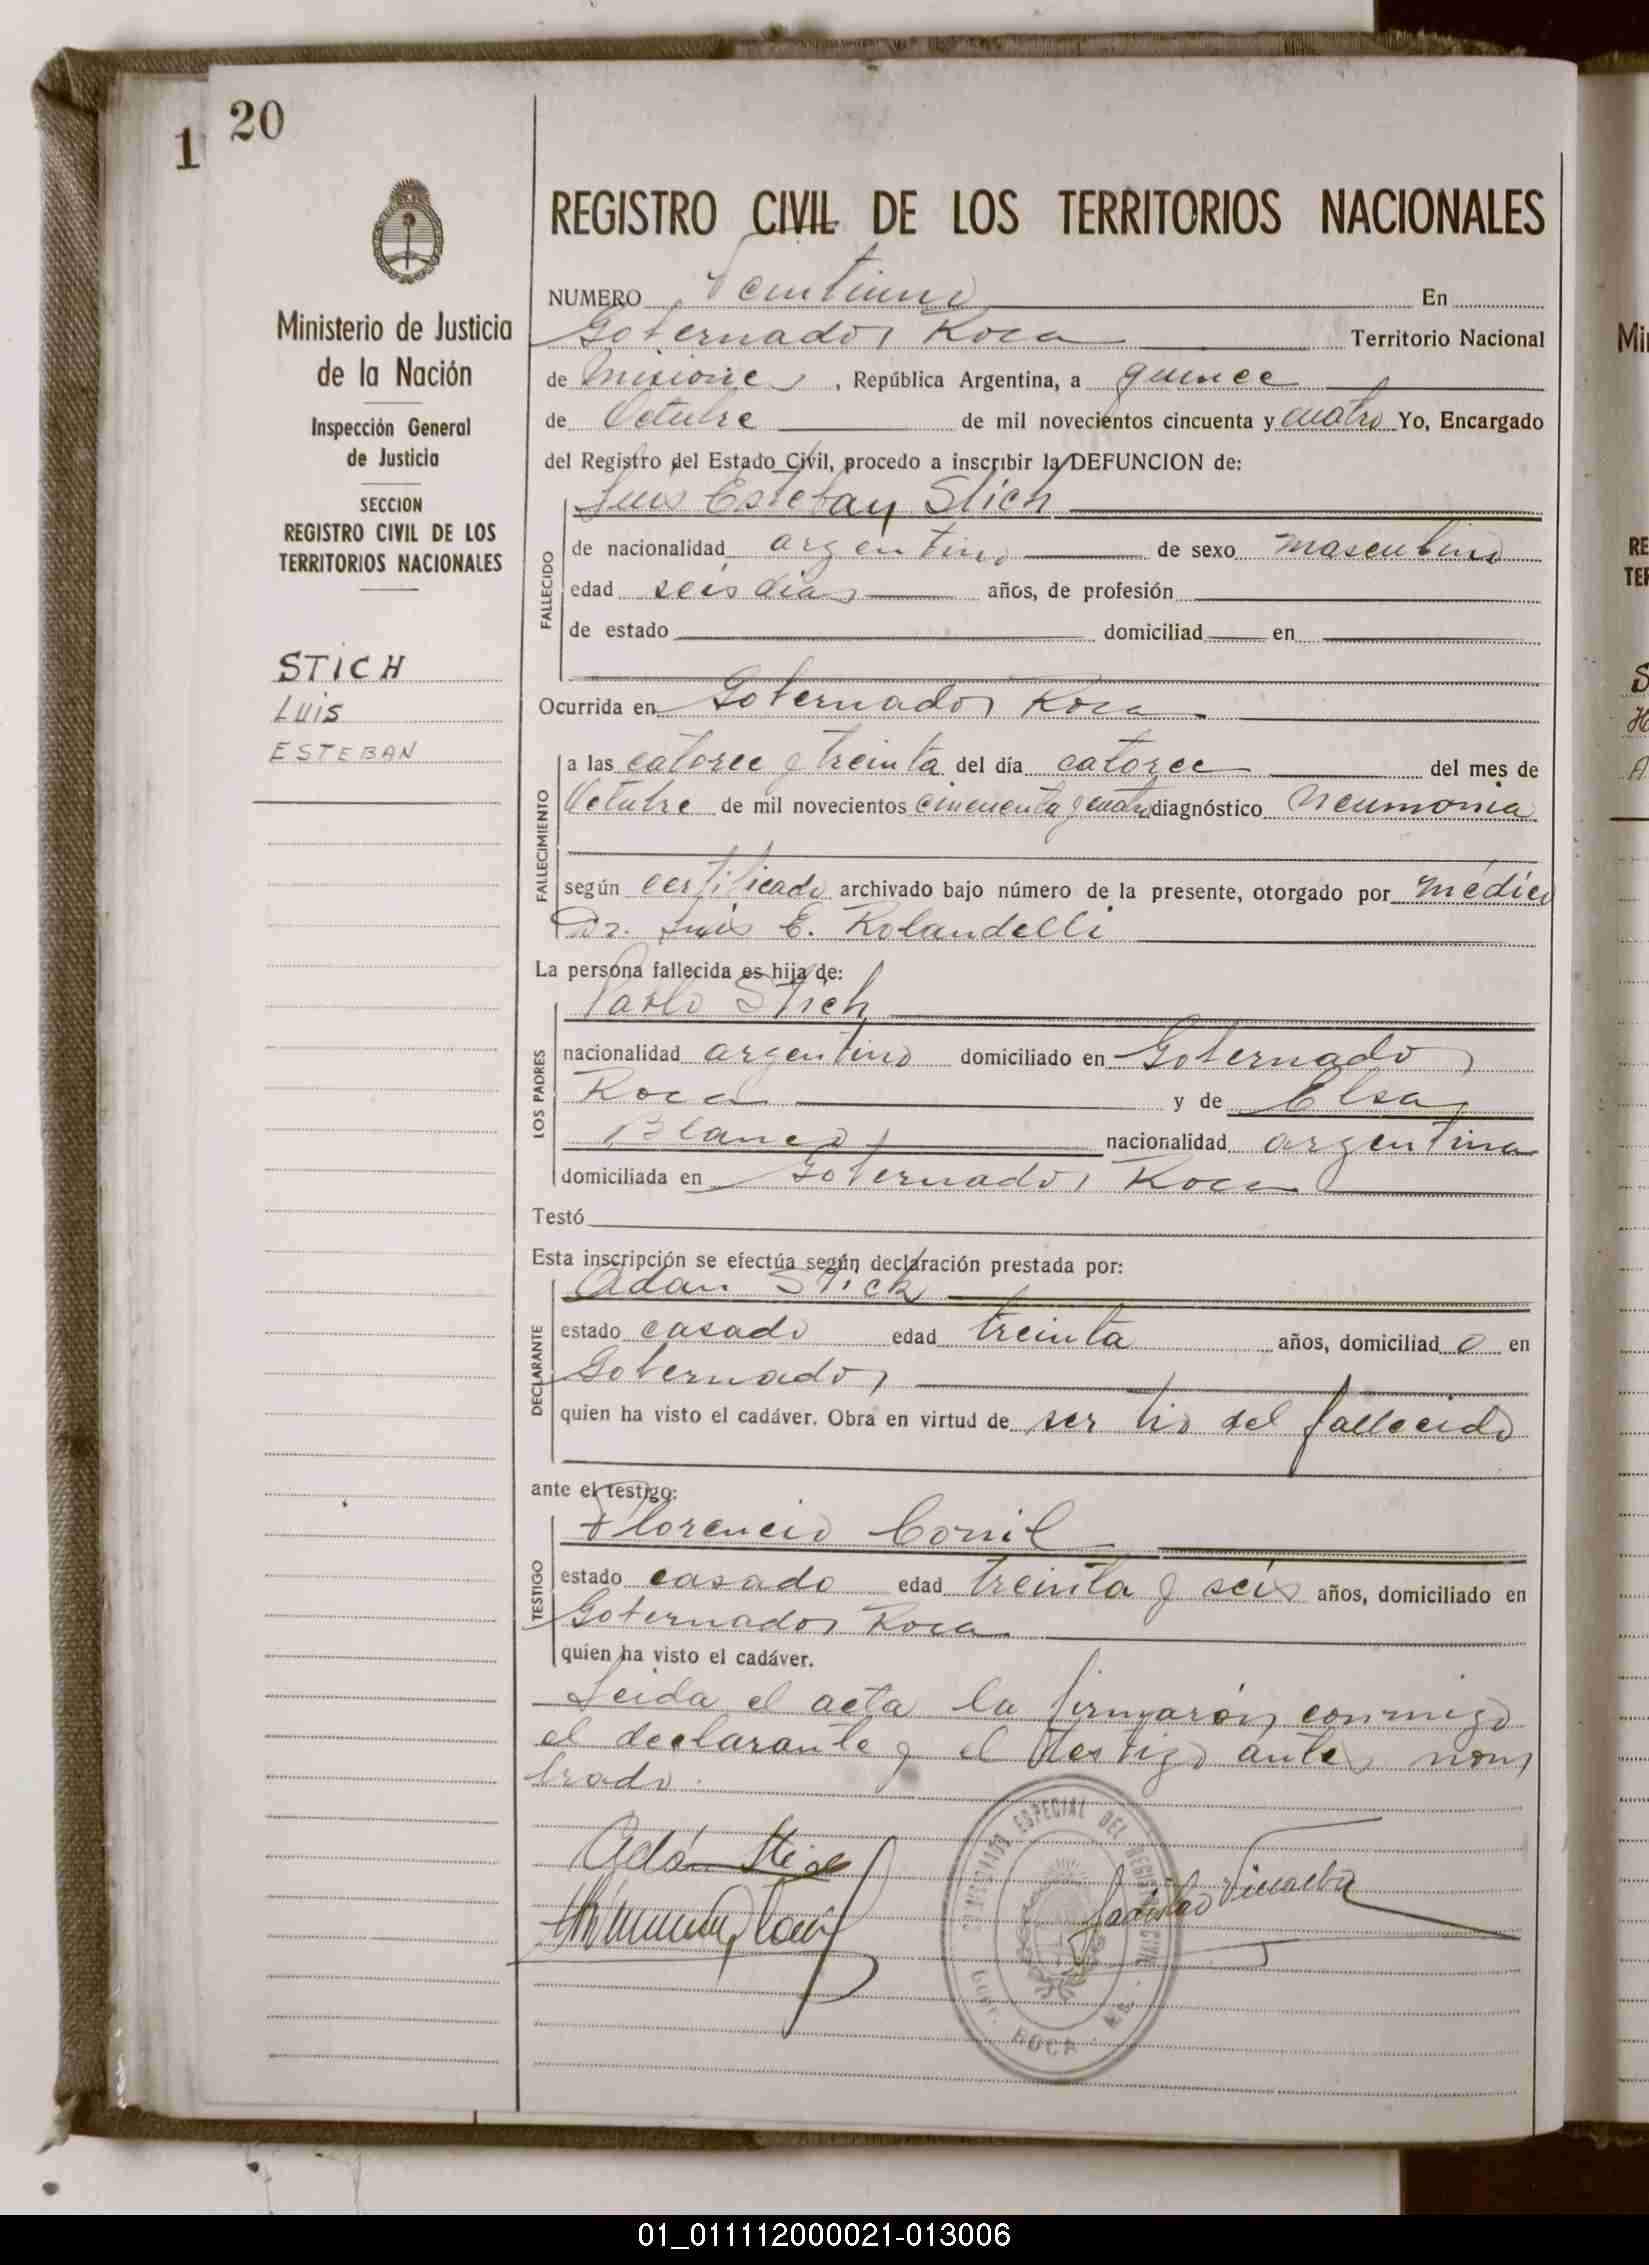 20
1
REGISTRO CIVIL DE LOS TERRITORIOS NACIONALES
Ministerio de Justicia
de la Nación
Inspección General
de Justicia
SECCION
REGISTRO CIVIL DE LOS
TERRITORIOS NACIONALES
STICH
LUIS
ESTEBAN
NUMERO Veintiuno En
Gobernador Roca Territorio Nacional
de Misiones, República Argentina, a quince
de Octubre de mil novecientos cincuenta y cuatro Yo, Encargado
del Registro del Estado Civil, procedo a inscribir la DEFUNCION de:
Luis Esteban Stich
FALLECIDO
de nacionalidad argentino de sexo masculino
edad seis días años, de profesión
de estado domiciliad en
Ocurrida en Gobernador Roca
FALLECIMIENTO
a las catorce y treinta del día catorce del mes de
Octubre de mil novecientos cincuenta y cuatro diagnóstico Neumonia
según certificado archivado bajo número de la presente, otorgado por médico
Dr. Luis E. Rolandelli
La persona fallecida es hija de:
Pablo Stich
LOS PADRES
nacionalidad argentino domiciliado en Gobernador
Roca y de Elsa
Blanco nacionalidad argentina
domiciliada en Gobernador Roca
Testó
Esta inscripción se efectúa según declaración prestada por:
Adan Stich
DECLARANTE
estado casado edad treinta años, domiciliad o en
Gobernador
quien ha visto el cadáver. Obra en virtud de ser tio del fallecido
ante el testigo:
Florencio Conil
TESTIGO
estado casado edad treinta y seis años, domiciliado en
Gobernador Roca
quien ha visto el cadáver.
Leida el acta la firmarón conmigo
el declarante y el testigo antes nom
brado.
Adán Stich
COMISARIADO ESPECIAL DEL REGISTRO CIVIL
GOBR. ROCA
Ladislao Villalba
Mi
RE
TER
S
H
A
01_011112000021-013006